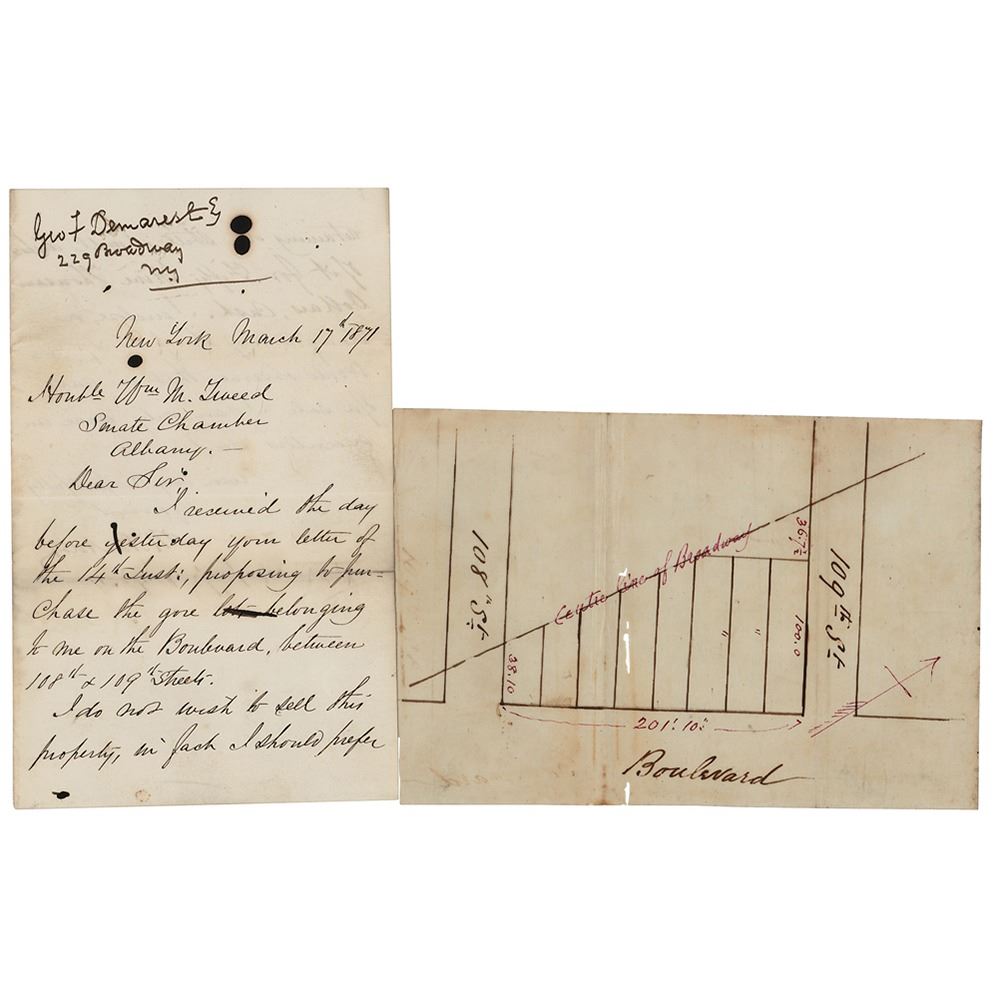 Geo F Demarest Esq
229 Broadway
NY
New York March 17th 1871
Honble Wm M. Tweed
Senate Chamber
Albany. —
Dear Sir
I received the day
before yesterday your letter of
the 14th Inst:, proposing to pur-
chase the gore lots belonging
to me on the Boulevard, between
108th & 109th Streets.
I do not wish to sell this
property, in fact I should prefer
108th St
Centre line of Broadway
36.7½
109th St
38.10
" "
100.0
201'.10"
Boulevard